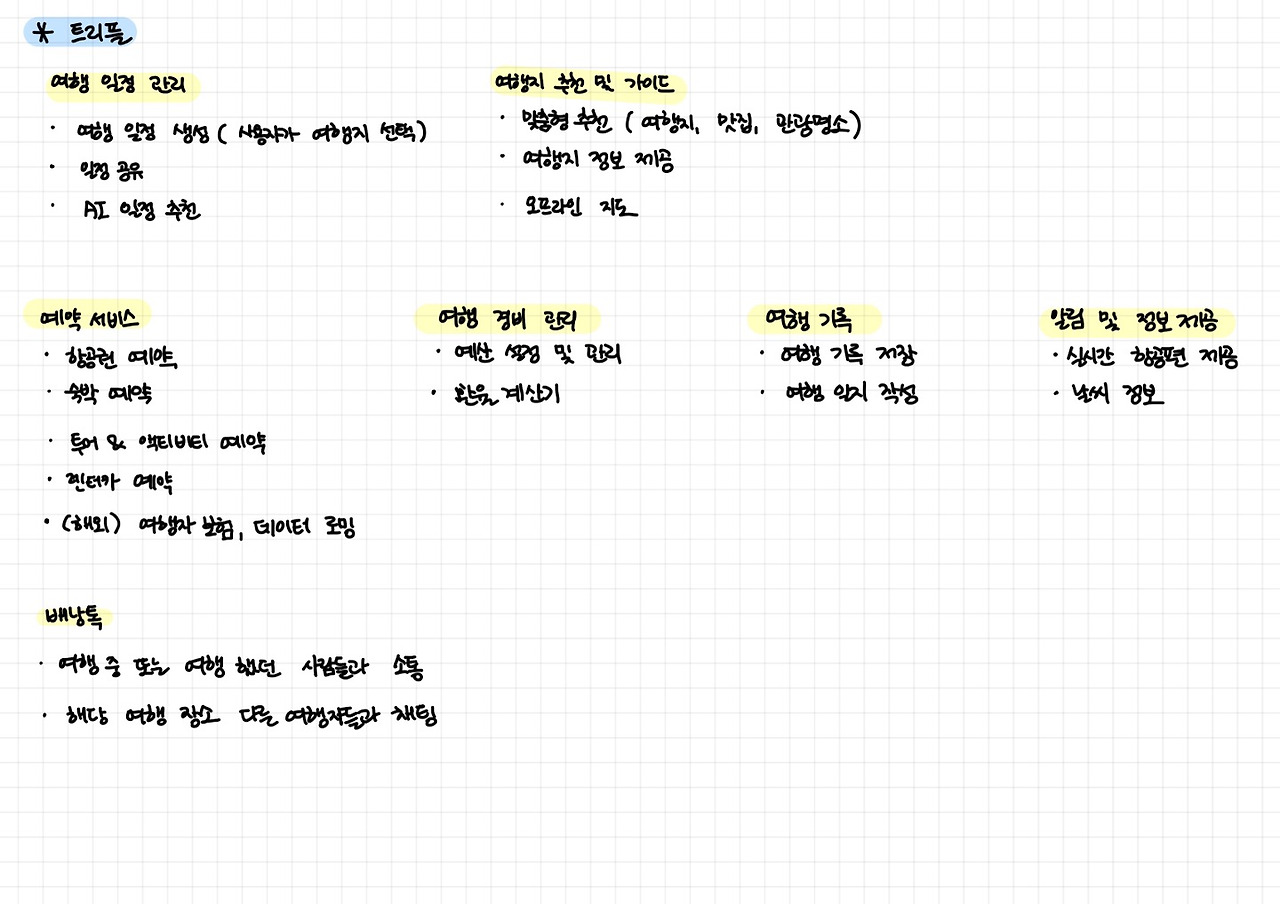 * 트리플
여행 일정 관리
· 여행 일정 생성 ( 사용자가 여행지 선택 )
· 일정 공유
· AI 일정 추천
여행지 추천 및 가이드
· 맞춤형 추천 ( 여행지, 맛집, 관광명소 )
· 여행지 정보 제공
· 오프라인 지도
예약 서비스
· 항공권 예약
· 숙박 예약
· 투어 & 액티비티 예약
· 렌터카 예약
· (해외) 여행자 보험, 데이터 로밍
여행 경비 관리
· 예산 설정 및 관리
· 환율 계산기
여행 기록
· 여행 기록 저장
· 여행 일지 작성
알림 및 정보 제공
· 실시간 항공편 제공
· 날씨 정보
배낭톡
· 여행 중 또는 여행 했던 사람들과 소통
· 해당 여행 장소 다른 여행자들과 채팅